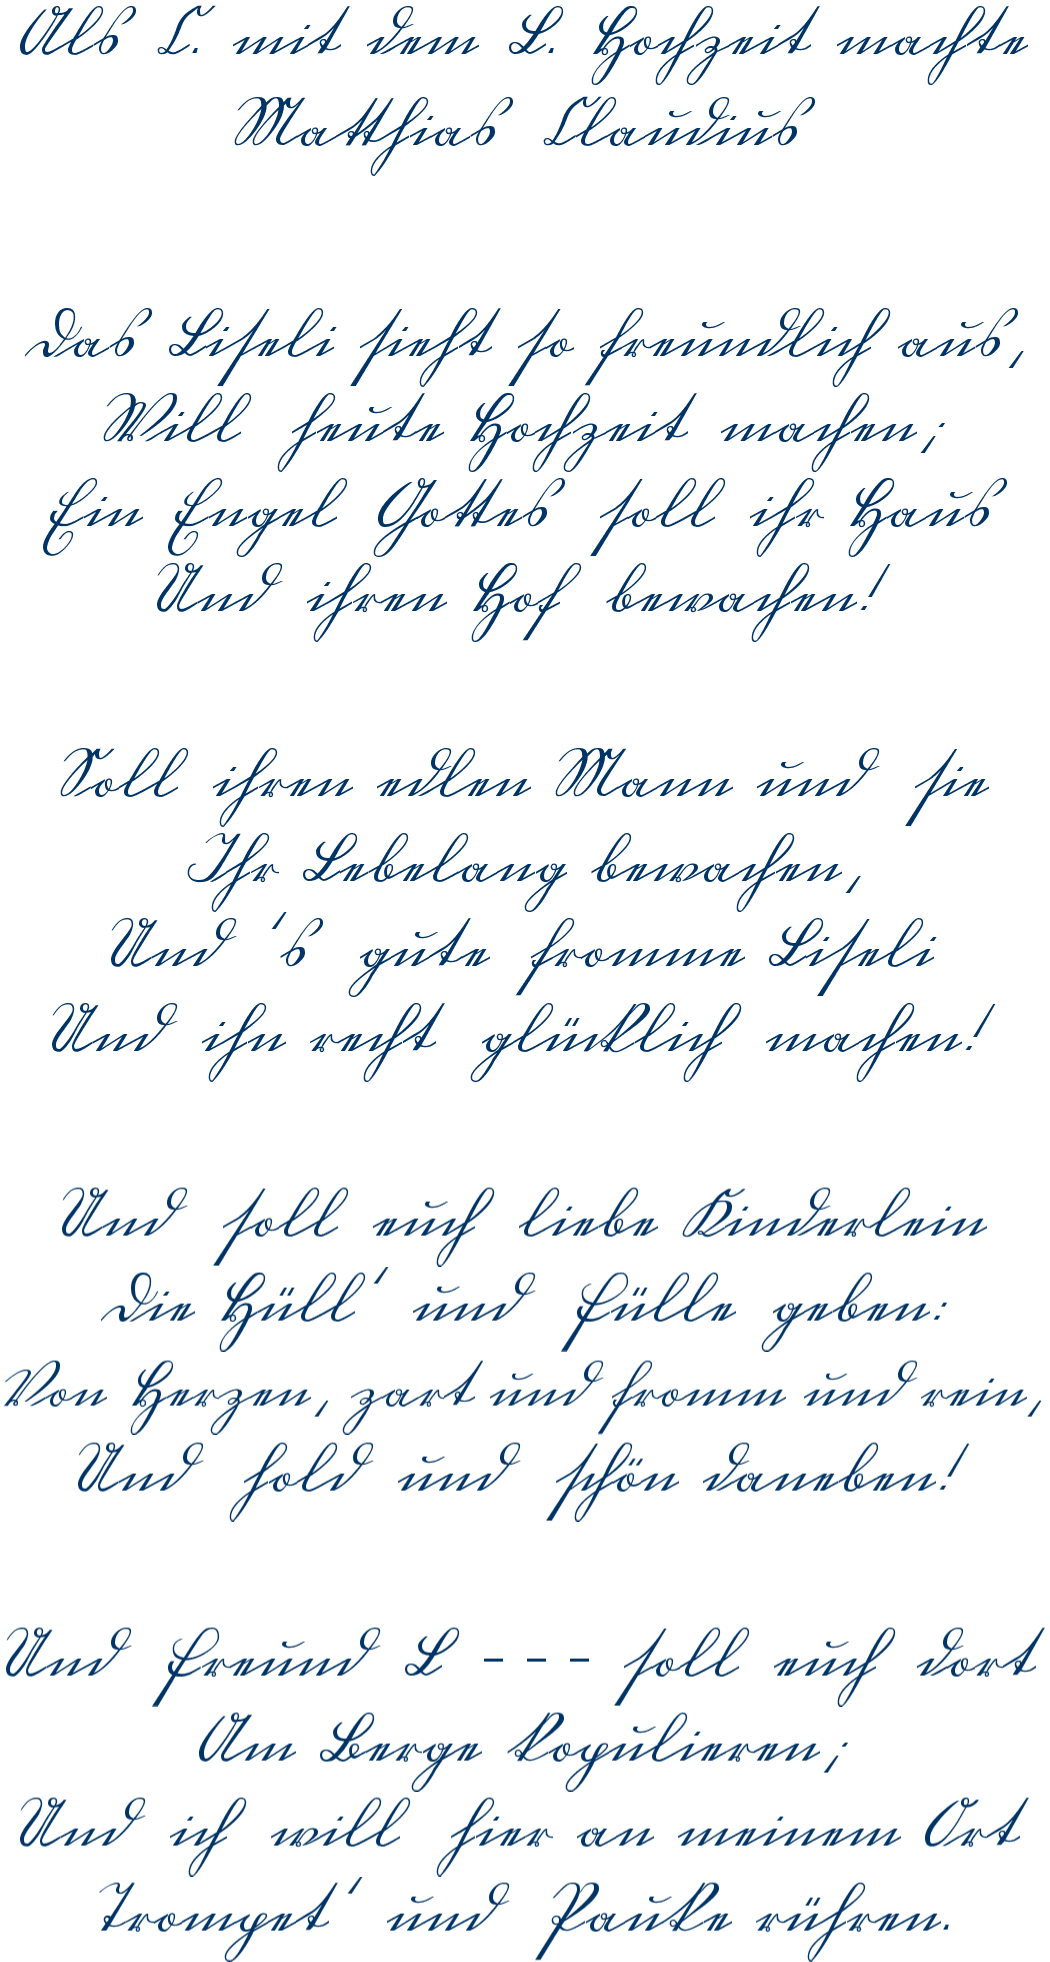 Als C. mit dem L. Hochzeit machte
Matthias Claudius
Das Liseli sieht so freundlich aus,
Will heute Hochzeit machen;
Ein Engel Gottes soll ihr Haus
Und ihren Hof bewachen!
Soll ihren edlen Mann und sie
Ihr Lebelang bewachen,
Und 's gute fromme Liseli
Und ihn recht glücklich machen!
Und soll euch liebe Kinderlein
Die Hüll' und Fülle geben:
Von Herzen, zart und fromm und rein,
Und hold und schön daneben!
Und Freund L - - - soll euch dort
Am Berge kopulieren;
Und ich will hier an meinem Ort
Trompet' und Pauke rühren.